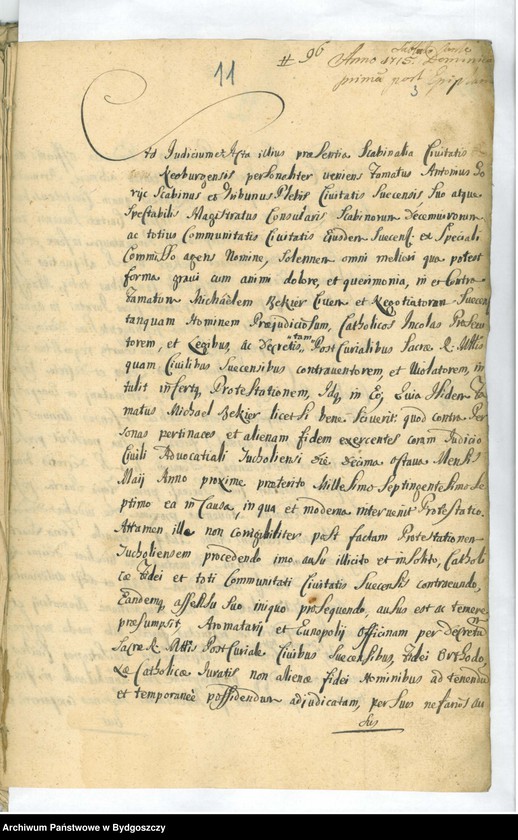 11 # 96 Sabbatho
Anno 1715. Dominica
primâ post Epip
3
Ad Judicium et Acta illius præsentia Scabinalia Civitatis
Neoburgensis personaliter veniens Famatus Antonius
Scabinus et Tribunus Plebis Civitatis Suecensis suo atque
Spectabilis Magistratus Consularis Scabinorum Decemvirorum
ac totius Communitatis Civitatis Eiusdem Suecens ex Speciali
Commisso agens Nomine, Solennem omni meliori quo potest
forma gravi cum animi dolore, et querimonia, in et contra
Famatum Michaëlem Bekier Civem et Negotiatorem Suecen
tanquam Hominem Præjudiciosum, Catholicos Incolas Prosecu
torem, et Legibus, ac Decretis tam PostCurialibus Sacræ R. Mttis
quam Civilibus Suecensibus contraventorem, et Violatorem, in
tulit infertq, Protestationem, Idq, in Eo, Quia Ibidem Fa
matus Michael Bekier licet si bene sciverit quod contra Per
sonas pertinaces et alienam fidem exercentes coram Judicio
Civili Advocatiali Tucholiensi Die Decima octava Mensis
Maij Anno proxime præterito Millesimo Septingentesimo Se
ptimo ea in Causa, in qua et moderna intervenit Protestatio.
Attamen ille non contribiliter post factam Protestationem
Tucholiensem procedendo imo ausu illicito et insolito, Catholi
cæ Fidei et toti Communitati Civitatis Suecensis contraeundo,
Eandemq, assensu suo iniquo prosequendo, ausus est ac temere
præsumpsit, Aromatarij et Eunopolij Officinam per Decretum
Sacræ R. Mttis PostCuriale Civibus Suecensibus, Fidei Orthodo
xæ Catholicæ Juratis non alienæ fidei Hominibus ad tenendum
et temporaneè possidendum adjudicatam, per suos nefarios au
sus
Archiwum Państwowe w Bydgoszczy